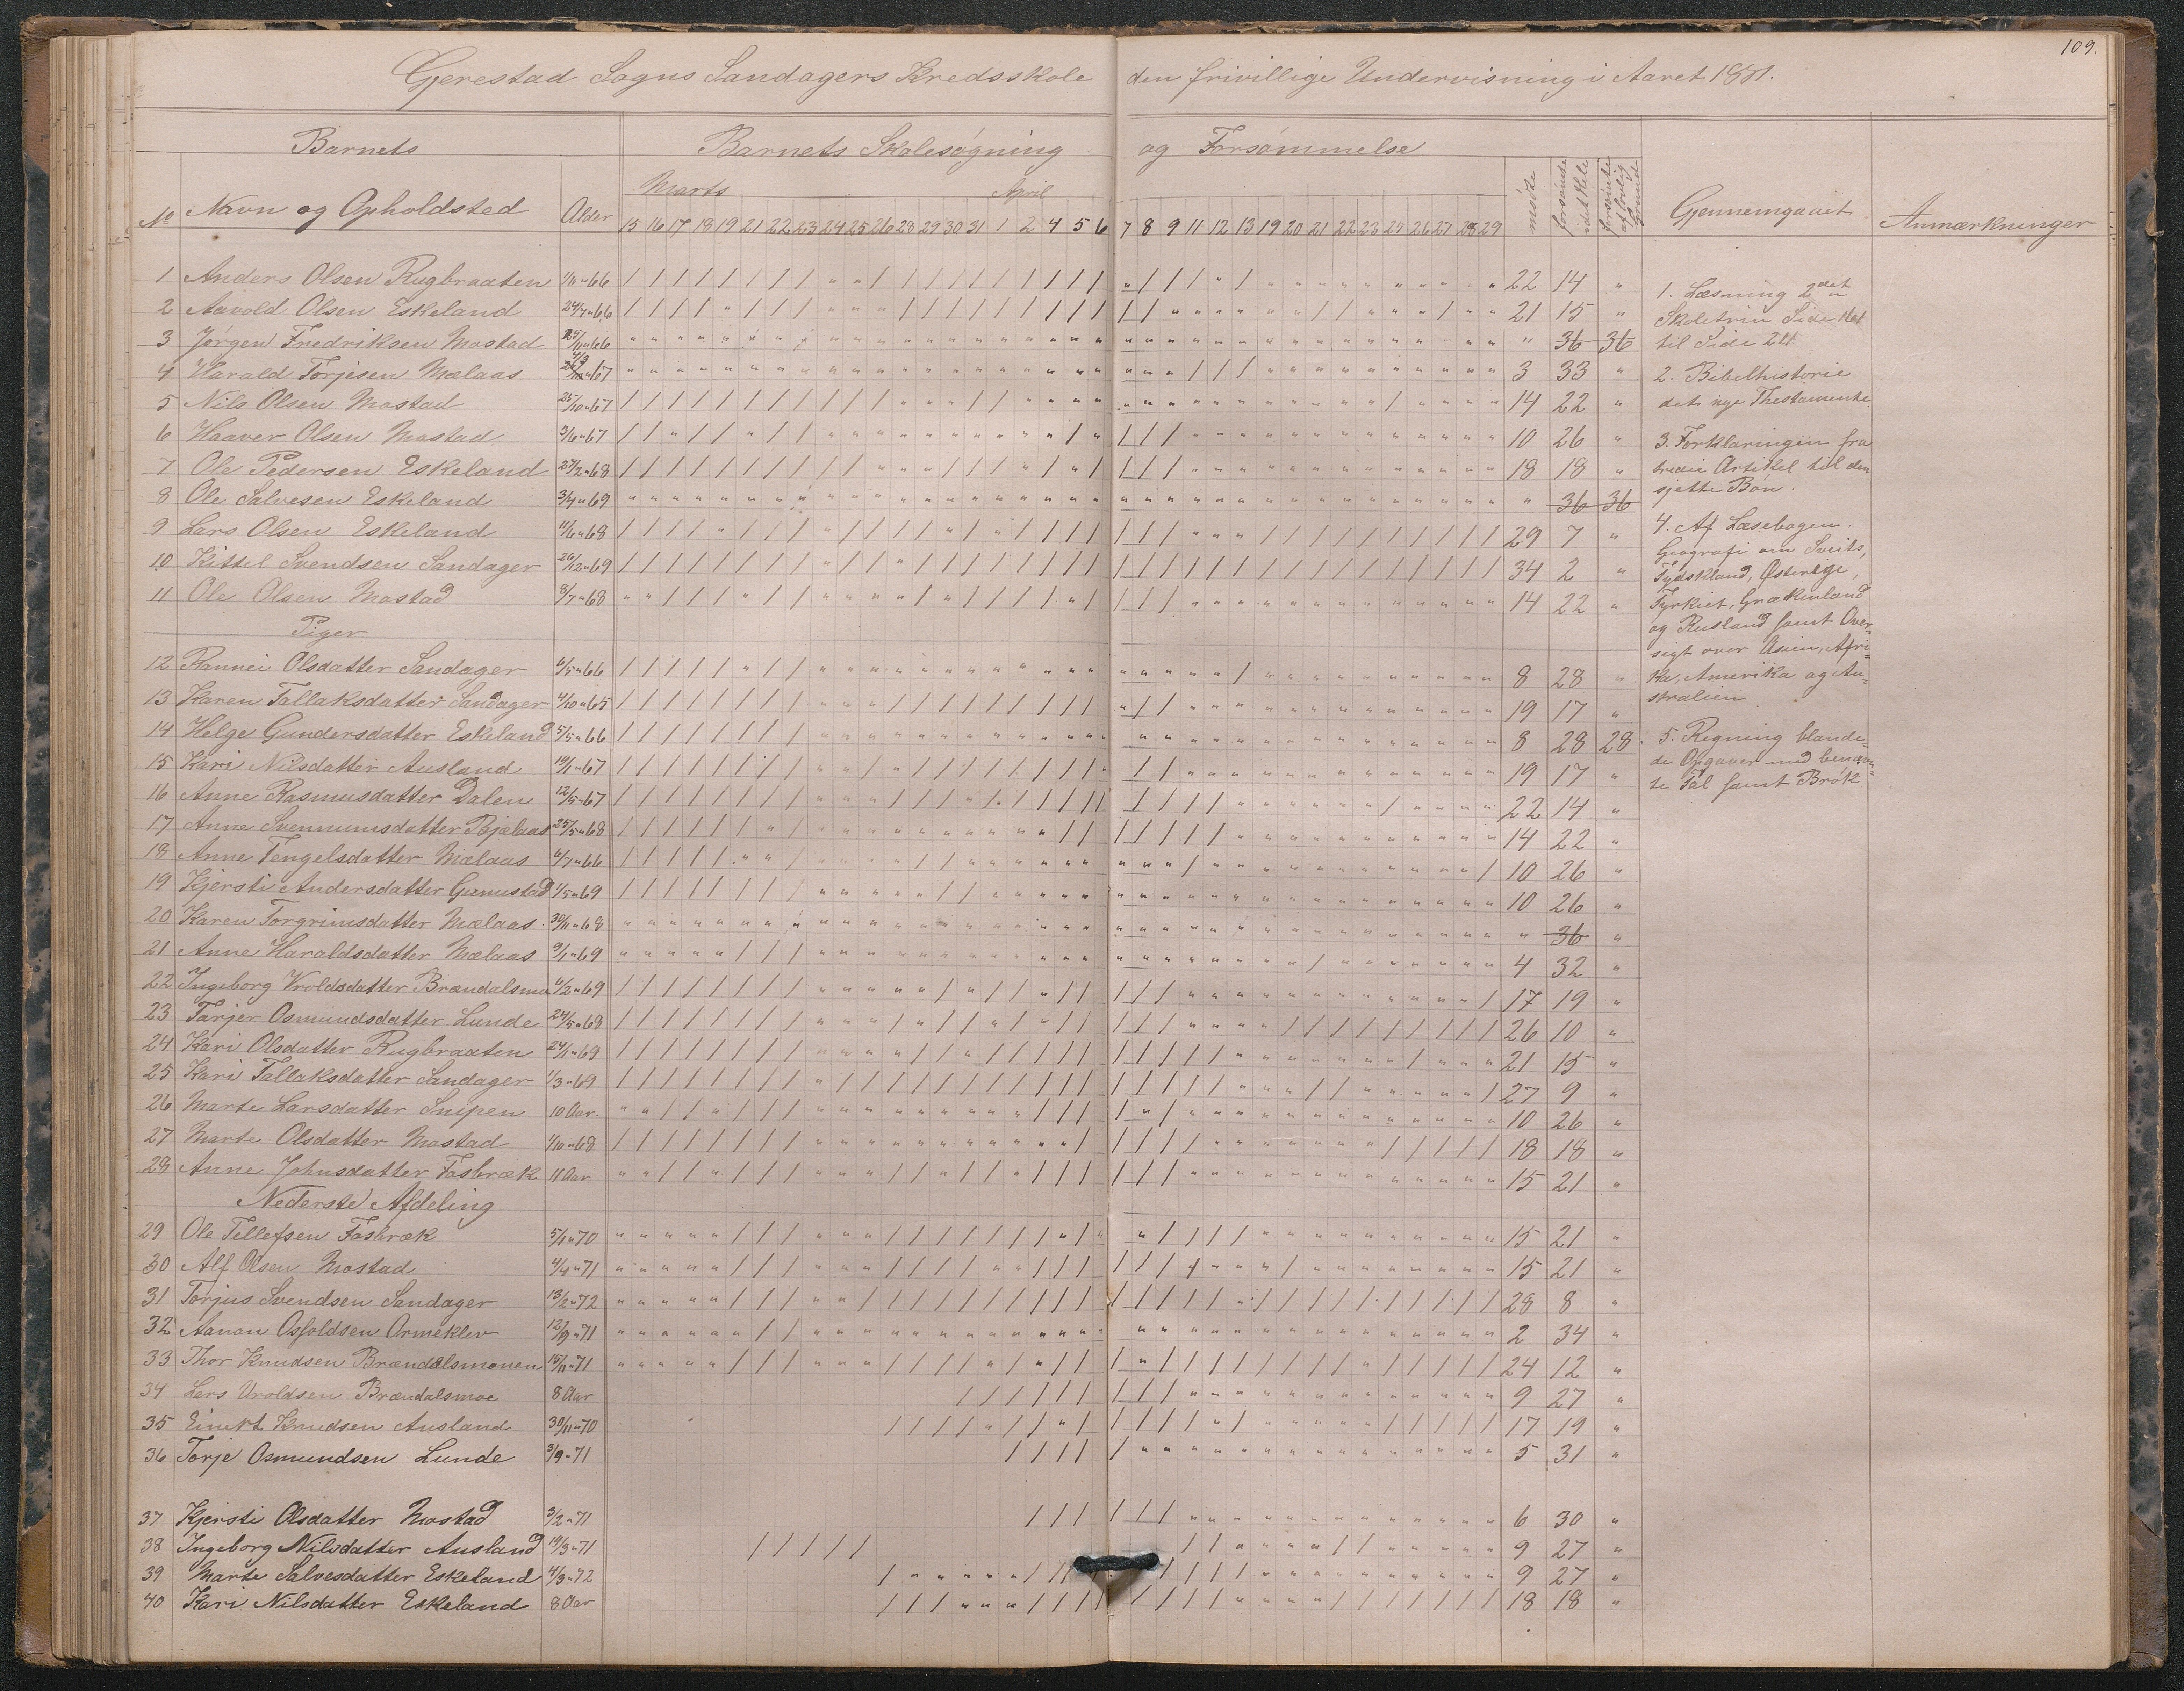 109.
Gjerestad Sogns Sandagers Kredsskole den frivillige Undervisning i Aaret 1881.
Barnets Barnets Skolesøgning og Forsømmelse
Marts April
No Navn og Opholdsted Alder 15 16 17 18 19 21 22 23 24 25 26 28 29 30 31 1 2 4 5 6 7 8 9 11 12 13 19 20 21 22 23 25 26 27 28 29 mødte forsømte idethele forsømte af lovlig Grunde Gjennemgaaet Anmærkninger
1 Anders Olsen Rugbraaten 66 22 14 "
2 Aavold Olsen Eskeland 24/7 " 66 21 15 "
3 Jørgen Fredriksen Mostad 25/11 " 66 " 36 36
4 Harald Torjesen Mælaas 67 3 33 "
5 Nils Olsen Mostad 25/10 " 67 14 22 "
6 Haaver Olsen Mostad 3/6 " 67 10 26 "
7 Ole Pedersen Eskeland 27/2 " 68 18 18 "
8 Ole Salvesen Eskeland 3/4 " 69 " 36 36
9 Lars Olsen Eskeland 11/6 " 68 29 7 "
10 Kittel Svendsen Sandager 26/12 " 69 34 2 "
11 Ole Olsen Mostad 8/7 " 68 14 22 "
Piger
12 Rannei Olsdatter Sandager 6/5 " 66 8 28 "
13 Karen Tallaksdatter Sandager 4/10 " 65 19 17 "
14 Helge Gundersdatter Eskeland 5/5 " 66 8 28 28
15 Kari Nilsdatter Ausland 19/11 " 67 19 17 "
16 Anne Rasmusdatter Dalen 12/5 " 67 22 14 "
17 Anne Svennumsdatter 25/5 " 68 14 22 "
18 Anne Tengelsdatter Mælaas 6/7 " 66 10 26 "
19 Kjersti Andersdatter 1/5 " 69 10 26 "
20 Karen Torgrimsdatter Mælaas 30/11 " 68 " 36 "
21 Anne Haraldsdatter Mælaas 9/1 " 69 4 32 "
22 Ingeborg Vroldsdatter Brændalsmo 4/2 " 69 17 19 "
23 Tarjer Osmundsdatter Lunde 24/5 " 68 26 10 "
24 Kari Olsdatter Rugbraaten 24/1 " 69 21 15 "
25 Kari Tallaksdatter Sandager 1/3 " 69 27 9 "
26 Marte Larsdatter Snipen 10 Aar 10 26 "
27 Marte Olsdatter Mostad 1/10 " 68 18 18 "
28 Anne Johnsdatter Fosbræk 11 Aar 15 21 "
Nederste Afdeling
29 Ole Tellefsen Fosbræk 5/11 " 70 15 21 "
30 Alf Olsen Mostad 4/4 " 71 15 21 "
31 Torjus Svendsen Sandager 13/2 " 72 28 8 "
32 Aanon Osfoldsen Ormeklev 12/9 " 71 2 34 "
33 Thor Knudsen Brændalsmonen 15/11 " 71 24 12 "
34 Lars Uroldsen Brændalsmoe 8 Aar 9 27 "
35 Einert Knudsen Ausland 30/11 " 70 17 19 "
36 Torje Osmundsen Lunde 3/9 " 71 5 31 "
37 Kjersti Olsdatter Mostad 3/2 " 71 6 30 "
38 Ingeborg Nilsdatter Ausland 19/3 " 71 9 27 "
39 Marte Salvesdatter Eskeland 4/3 " 72 9 27 "
40 Kari Nilsdatter Eskeland 8 Aar 18 18 "
1. Læsning 2det
Skoletrin Side
til Side
2. Bibelhistorie
det nye Thestamente
3. Forklaringen fra
tredie Artikel til den
sjette Bøn.
4. Af Læsebogen
Geografi om Sveits,
Tydskland, Østerige,
Tyrkiet, Grækenland
og Rusland samt Over-
sigt over Asien, Afri-
ka, Amerika og Au-
stralien
5. Regning blande-
de Opgaver med benævn-
te Tal samt Brøk.